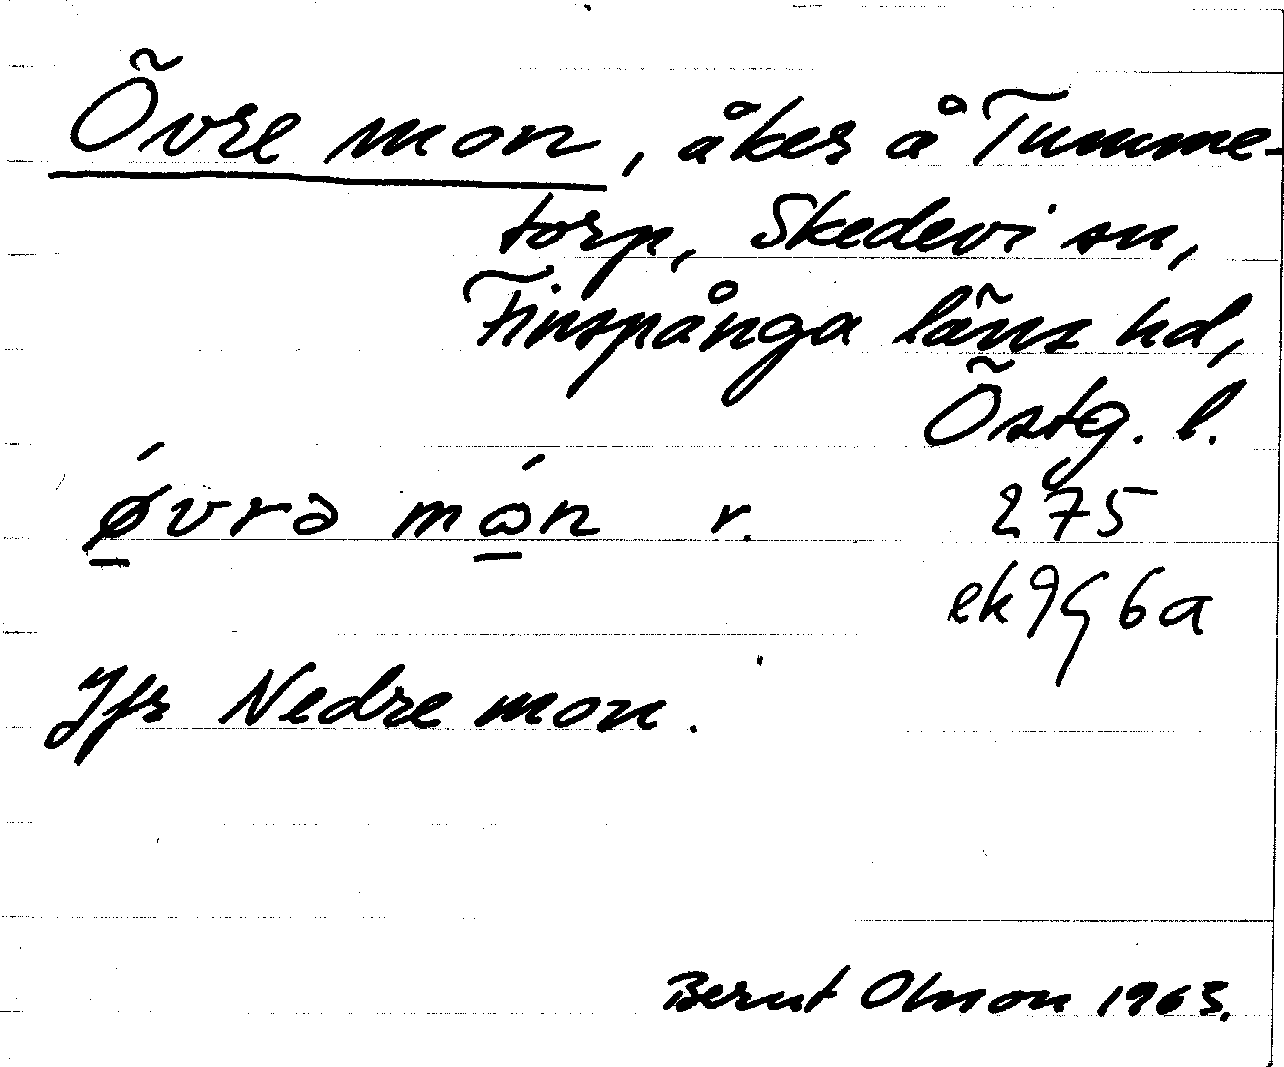 Övre mon, åker å Tumme-
torp, Skedevi sn,
Finspånga läns hd,
Östg. l.
ǿvrə món r. 275
ek 9G6a
Jfr Nedre mon.
Bernt Olsson 1963.